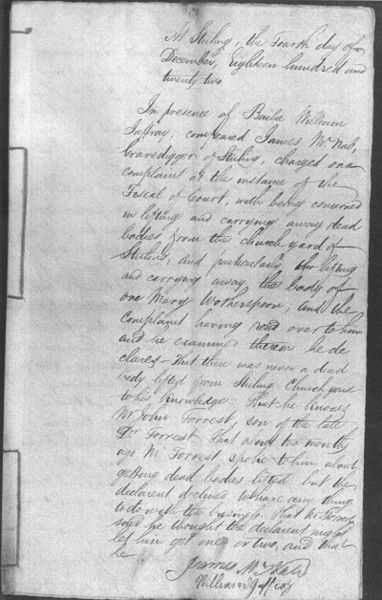 At Stirling, the Fourth day of
December, eighteen hundred and
twenty two.
In presence of Bailie William
Jaffray, compeared James McNab,
Gravedigger of Stirling, charged on a
complaint at the instance of the
Fiscal of Court, with being concerned
in lifting and carrying away dead
bodies from the church-yard of
Stirling, and particularly the lifting
and carrying away the body of
one Mary Wotherspoon, and the
Complaint having read over to him
and he examined thereon he de
clares - That there was never a dead
body lifted from Stirling Church yard
to his knowledge. That he knows
Mr John Forrest, son of the late
Dr Forrest. That about two months
ago Mr. Forrest spoke to him about
getting dead bodies lifted but the
declarant declined to have any thing
to do with the business. That Mr Forrest
said he thought the declarant might
let him get one or two, and that
he
James McNab
William Jaffray